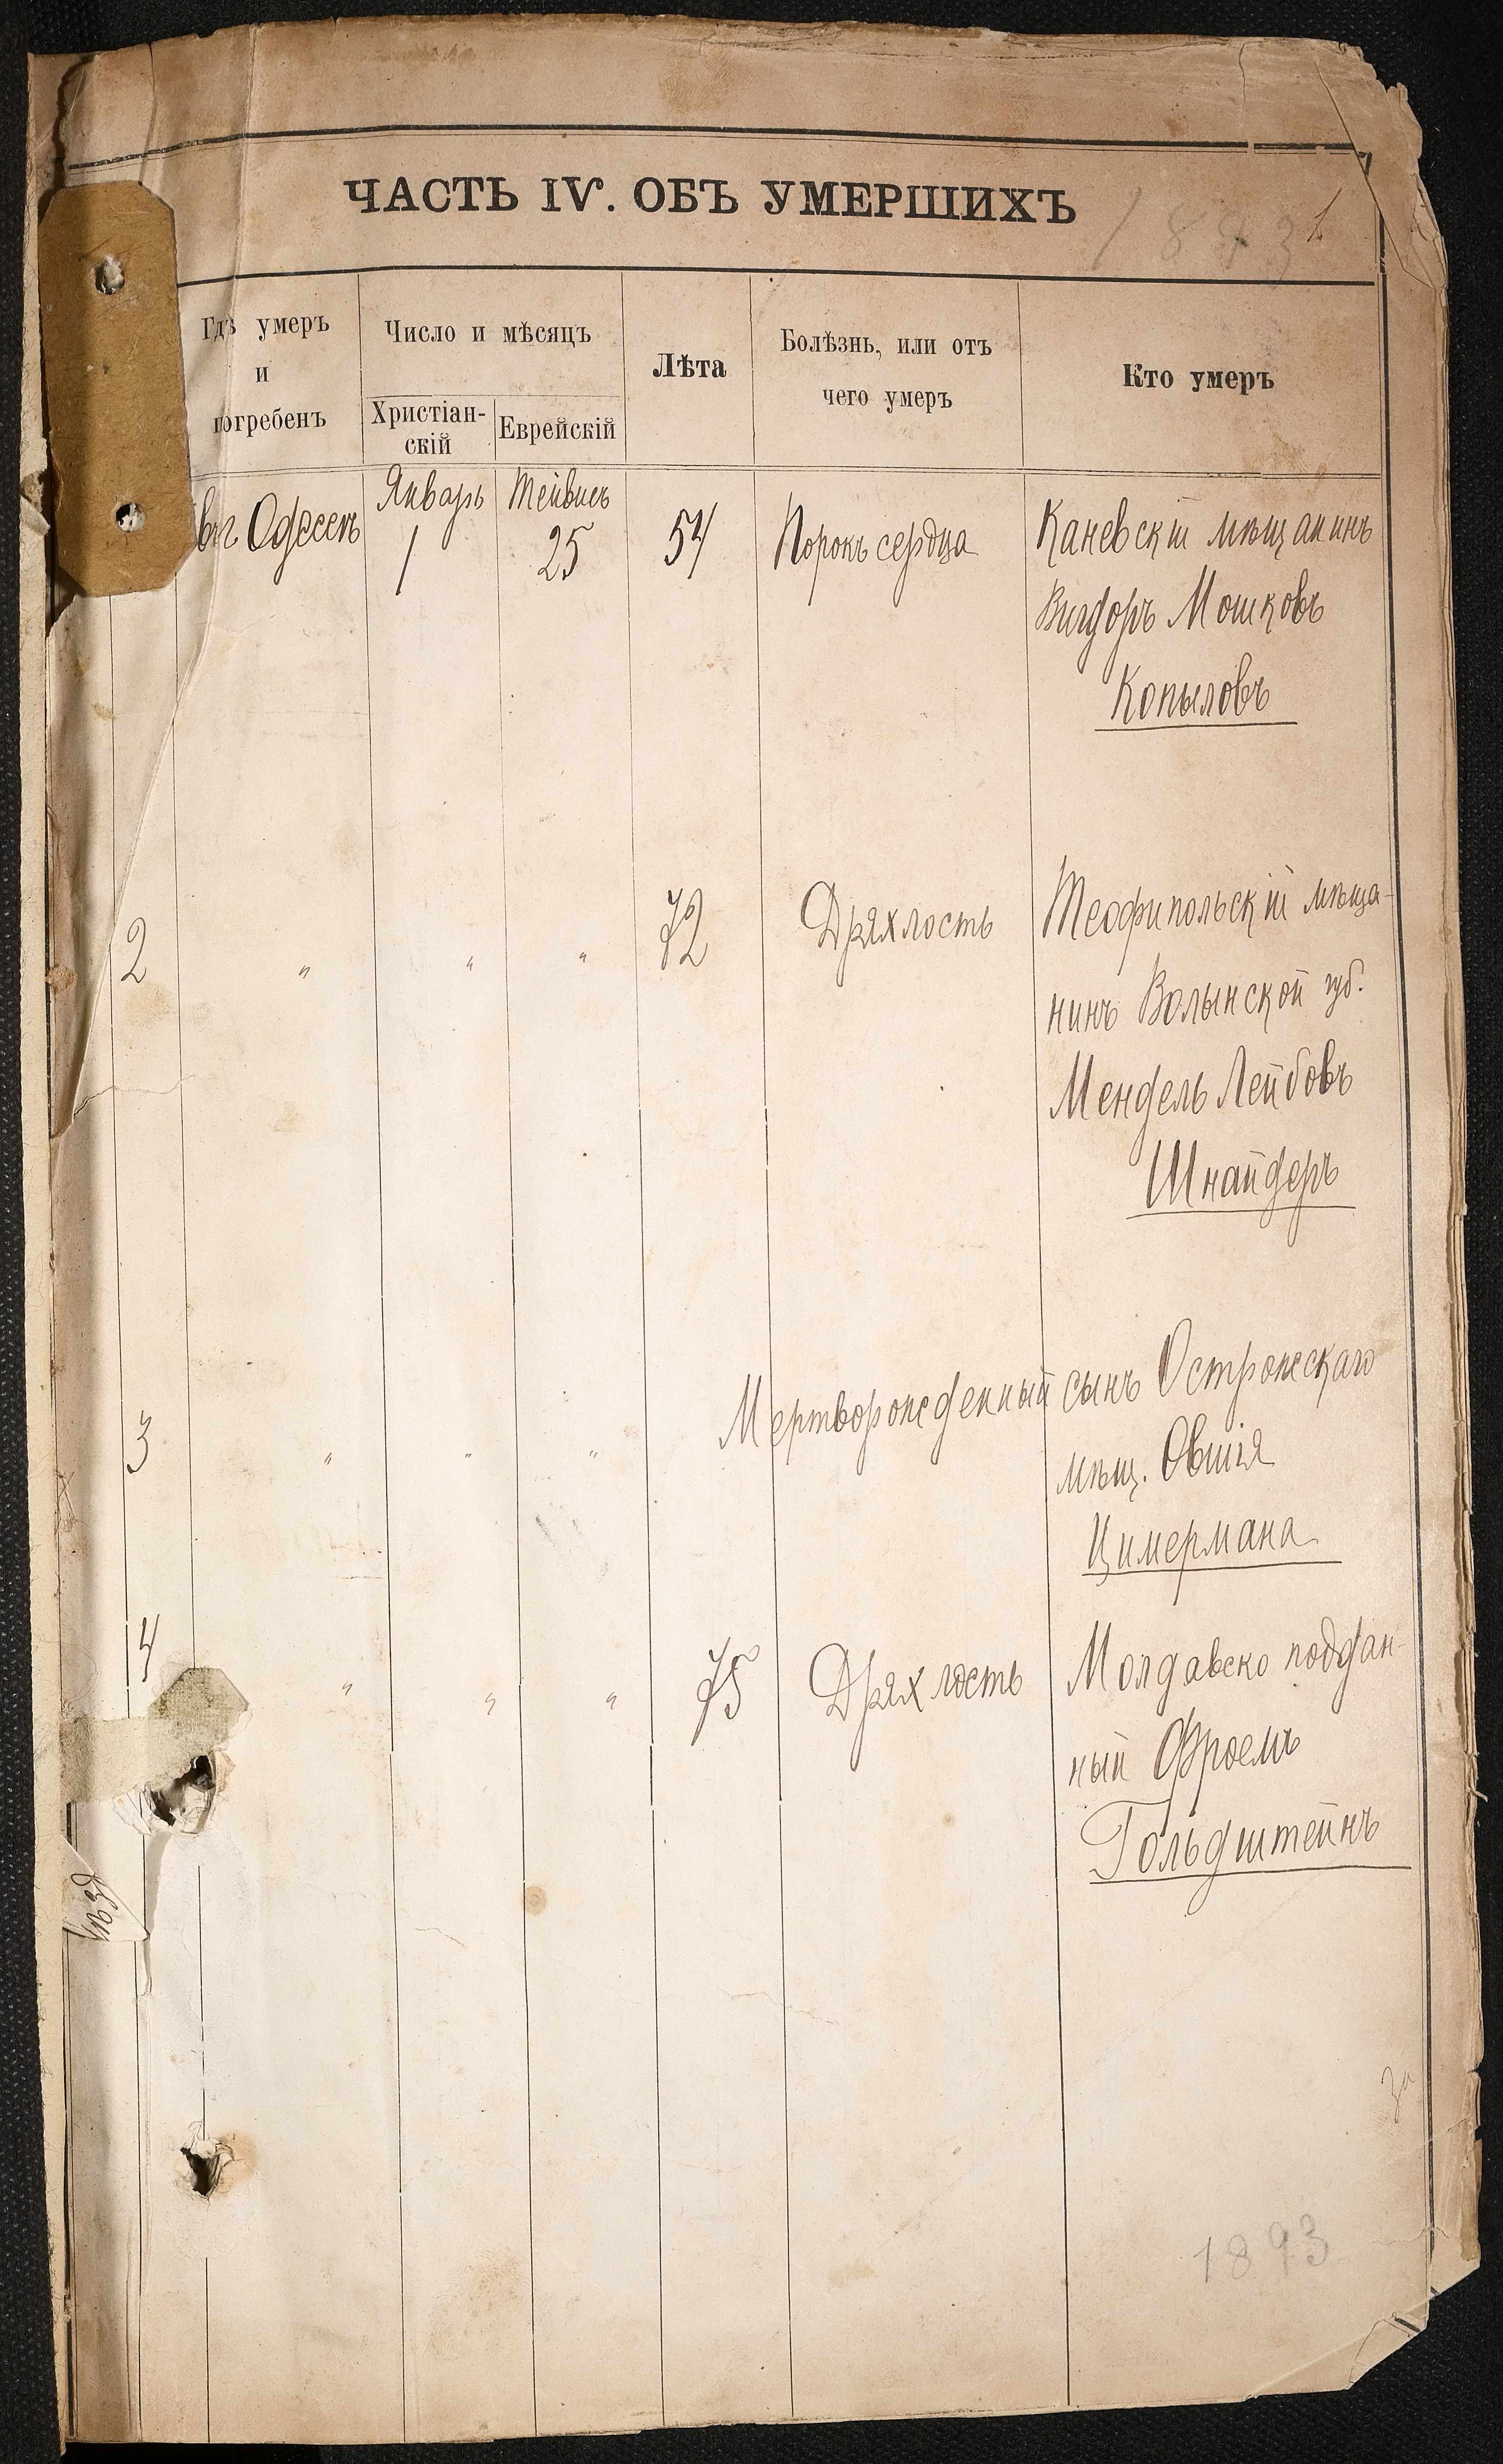 ЧАСТЬ IV. ОБЪ УМЕРШИХЪ
1
Гдѣ умеръ
и
погребенъ
Число и мѣсяцъ
Христіан-
скій
Еврейскій
Лѣта
Болѣзнь, или отъ
чего умеръ
Кто умеръ
Январь Тейвисъ
въ г Одессѣ 1 25 54 Порокъ сердца Каневскій мѣщанинъ
Вигдоръ Мошковъ
Копыловъ
2 " " " 72 Дряхлость Теофипольскій мѣща-
нинъ Волынской губ.
Мендель Лейбовъ
Шнайдеръ
3 " " " Мертворожденный сынъ Острожскаго
мѣщ. Овшія
Цимермана
4 " " " 75 Дряхлость Молдавско поддан-
ный Фроемъ
Гольдштейнъ
1893